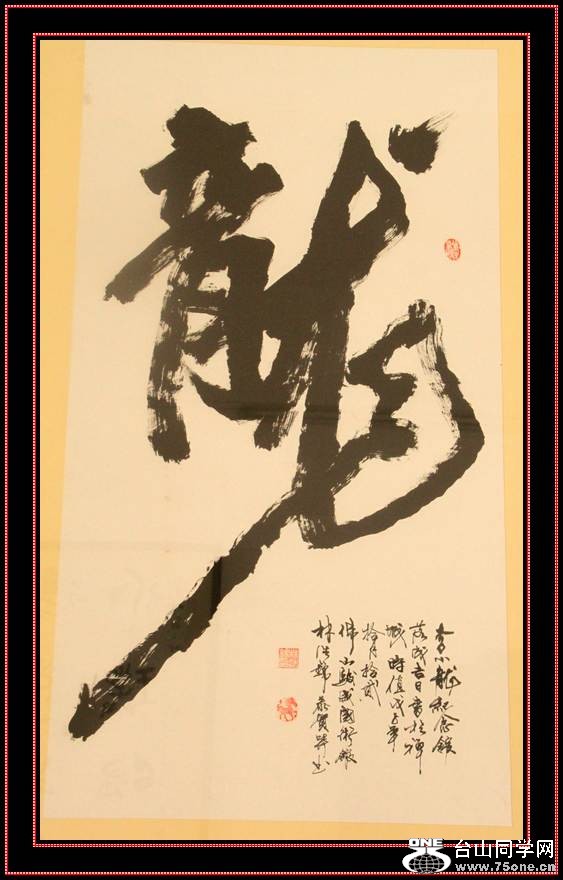 龍
李小龍紀念館
落成吉日書於禪
城時值戊子年
拾月拾貳
佛山駿武國術館
林 恭賀并書
ONE
台山同学网
www.75one.cn